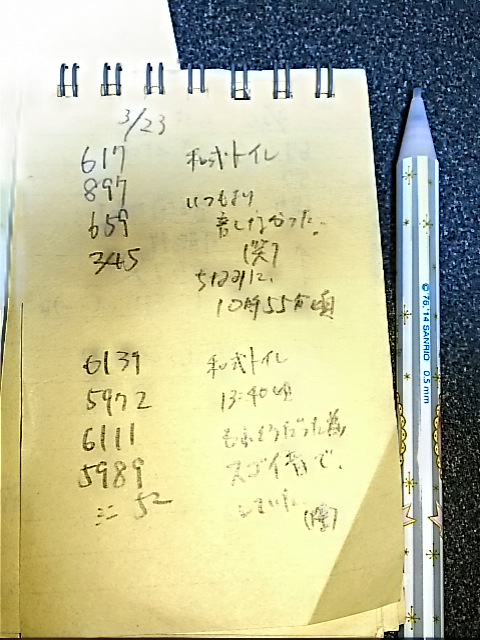 3/23
617 和式トイレ
897 いつもより
659 音しなかった。
345 (笑)
ちなみに、
10時55分頃
6139 和式トイレ
5972 13:40頃
6111
5989 スゴイ音で、
52 していた。
© '76, '14 SANRIO 0.5 mm